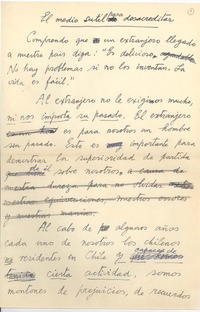 El modo sutil para desacreditar
Comprendo que un extranjero llegado
a nuestro país diga: "Es delicioso,
No hay problemas si no los inventan. La
vida es fácil."
Al extranjero no le exigimos mucho,
ni nos importa su pasado. El extranjero
es para nosotros un hombre
sin pasado. Esto es muy importante para
demostrar la superioridad de partida
de él sobre nosotros,
Al cabo de algunos años
cada uno de nosotros los chilenos
residentes en Chile y
cierta actividad, somos
montones de prejuicios, de recuerdos